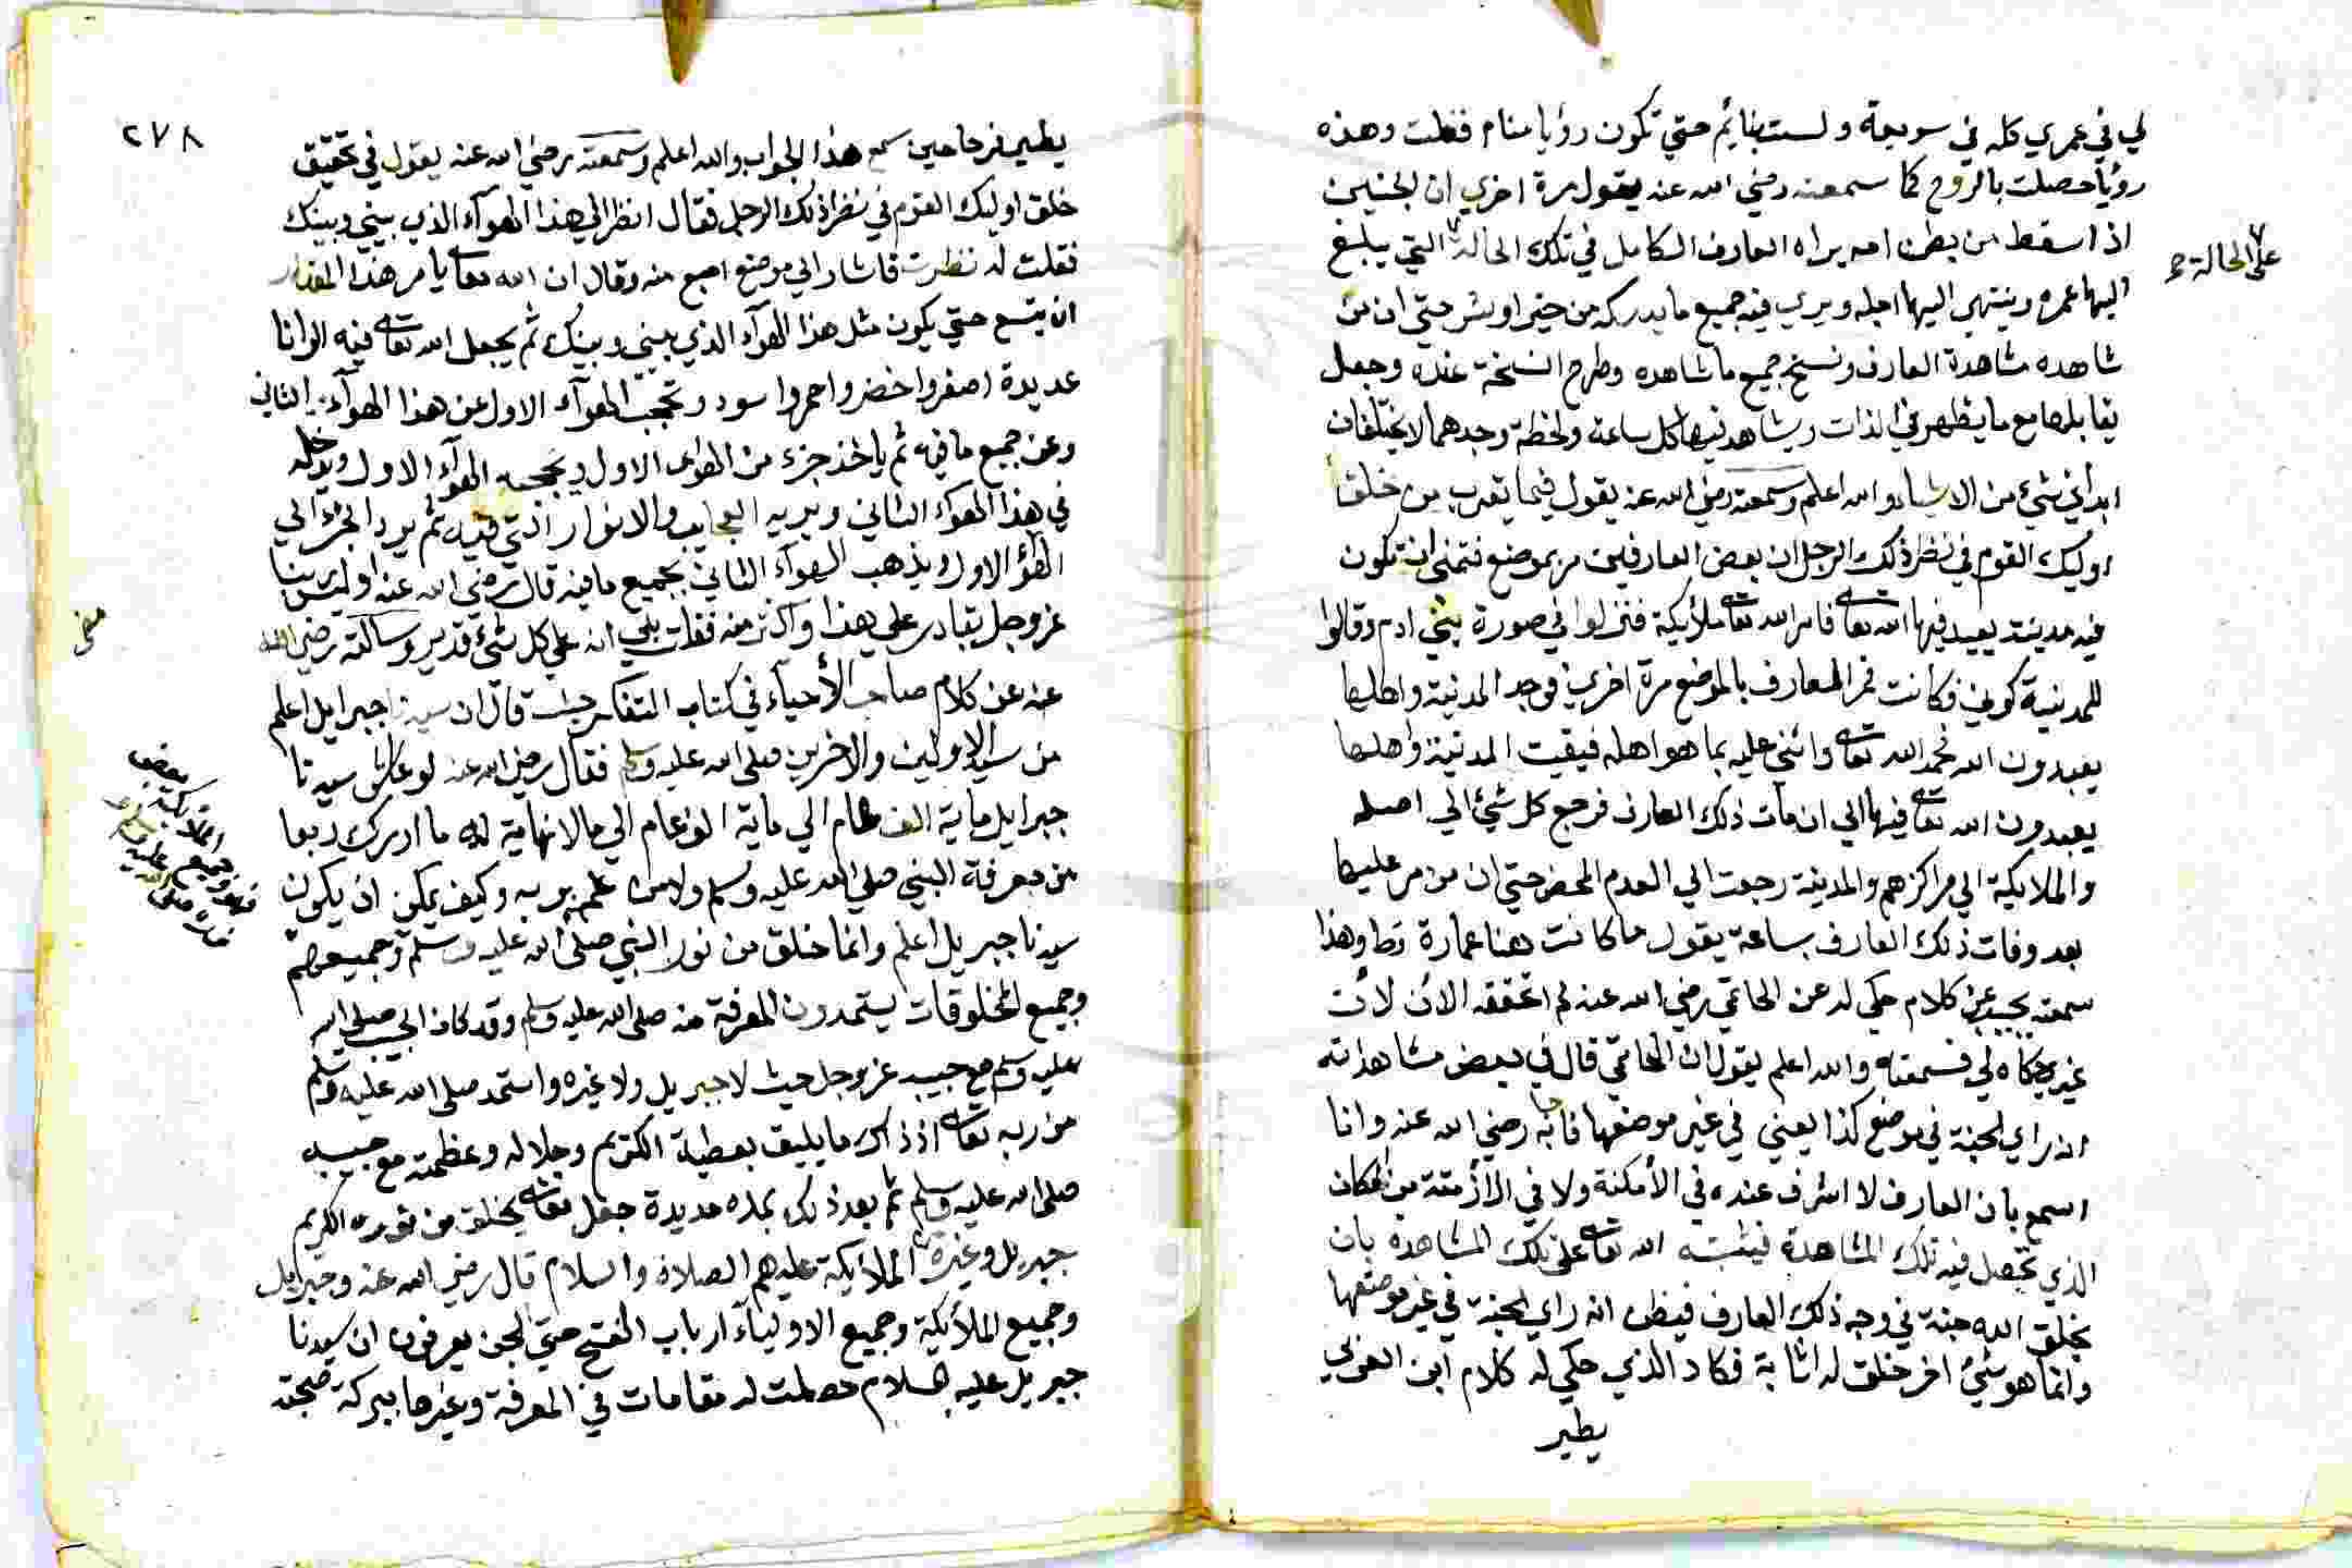 لي في عمري كله في سويعة ولست بنائم حتي تكون رؤيا منام فقلت وهذه
رؤيا حصلت بالروح كما سمعته رضي الله عنه يقول مرة اخري ان الجنين
اذا سقط من بطن امه يراه العارف الكامل في تلك الحالة التي يبلغ
على الحالة
اليها عمره وينتهي اليها اجله ويري فيه جميع ما يدركه من خير او شر حتي ان من
شاهده مشاهدة العارف ونسخ جميع ما شاهده وطرح النسخة عنده وجعل
يقابلها مع ما يظهر في الذات ويشاهد فيها كل ساعة ولحظة وجدهما لا يختلفان
ابدا في شيء من الاشياء والله اعلم وسمعته رضي الله عنه يقول فيما يقرب من خلق
اوليك القوم في نظر ذلك الرجل ان بعض العارفين مر بموضع فتمنى ان تكون
فيه مدينة يعبد فيها الله تعالى فامر الله تعالى ملائيكة فنزلوا في صورة بني ادم وقالوا
للمدينة كوني فكانت فمر العارف بالموضع مرة اخري فوجد المدينة واهلها
يعبدون الله فحمد الله تعالى واثني عليه بما هو اهله فبقيت المدينة واهلها
يعبدون الله تعالى فيها الي ان مات ذلك العارف فرجع كل شيء الي اصله
والملايكة الي مراكزهم والمدينة رجعت الي العدم المحض حتي ان من مر عليها
بعد وفات ذلك العارف بساعة يقول ما كانت هنا عمارة قط وهذا
سمعته يجيب عن كلام حكي له عن الحاتمي رضي الله عنه لم احققه الان لان
غيري حكاه لي فسمعته والله اعلم يقول ان الحاتمي قال في بعض مشاهداته
انه راي الجنة في موضع كذا يعني في غير موضعها فاجابه رضي الله عنه وانا
اسمع بان العارف لا اشرف عنده في الأمكنة ولا في الازمنة من المكان
الذي تحصل فيه تلك المشاهدة فيثيبه الله تعالى على تلك المشاهدة بان
يخلق الله جنة في وجه ذلك العارف فيظن انه راي الجنة في غير موضعها
وانما هو شيء اخر خلق له اثابة فكاد الذي حكي له كلام ابن العربي
يطير
٢٧٨
يطير فرحا حين سمع هذا الجواب والله اعلم وسمعته رضي الله عنه يقول في تحقيق
خلق اوليك القوم في نظر ذلك الرجل فقال انظر الي هذا الهوآء الذي بيني وبينك
فقلت له نظرت فاشار الي موضع اصبع منه وقال ان الله تعالى يامر هذا المقدار
ان يتسع حتي يكون مثل هذا الهوآء الذي بيني وبينك ثم يجعل الله تعالى فيه الوانا
عديدة اصفر واخضر واحمر واسود ويحجب الهوآء الاول عن هذا الهوآء الثاني
وعن جميع ما فيه ثم ياخذ جزء من الهواء الاول ويحجبه الهوآء الاول ويدخله
في هذا الهوآء الثاني ويريه العجايب والانوار التي فيه ثم يرد الجزء الي
الهوآء الاول ويذهب الهوآء الثاني بجميع ما فيه قال رضي الله عنه اوليس ربنا
عز وجل بقادر على هذا واكثر منه فقلت بلي انه علي كل شيء قدير وسالته رضي الله
عنه عن كلام صاحب الأحياء في كتاب التفكر حيث قال ان سيدنا جبرايل اعلم
من سيد الاولين والاخرين صلى الله عليه وسلم فقال رضي الله عنه لو عاش سيدنا
جبرايل ماية الف عام الي ماية الف عام الي ما لا نهاية له ما ادرك ربعا
من معرفة النبي صلى الله عليه وسلم ولا من علمه بربه وكيف يمكن ان يكون
سيدنا جبريل اعلم وانما خلق من نور النبي صلى الله عليه وسلم وجميعهم
وجميع المخلوقات يستمدون المعرفة منه صلى الله عليه وسلم وقد كان الحبيب صلى الله
عليه وسلم مع حبيبه عز وجل حيث لا جبريل ولا غيره واستمد صلى الله عليه وسلم
من ربه تعالى اذ ذاك ما يليق بعطية الكريم وجلاله وعظمته مع حبيبه
صلى الله عليه وسلم ثم بعد ذلك بمدة مديدة جعل تعالى يخلق من نوره الكريم
جبريل وغيره من الملأيكة عليهم الصلاة والسلام قال رضي الله عنه وجبرايل
وجميع الملأيكة وجميع الاولياء ارباب الفتح حتي الجن يعرفون ان سيدنا
جبريل عليه السلام حصلت له مقامات في المعرفة وغيرها ببركة صحبته
فهو وجميع الملائكة بعض